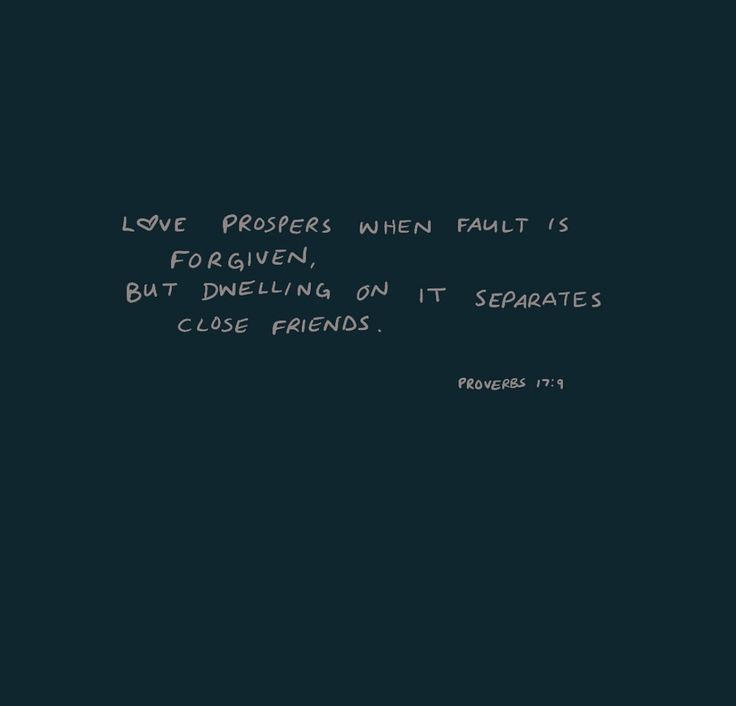 LOVE PROSPERS WHEN FAULT IS
FORGIVEN,
BUT DWELLING ON IT SEPARATES
CLOSE FRIENDS.
PROVERBS 17:9